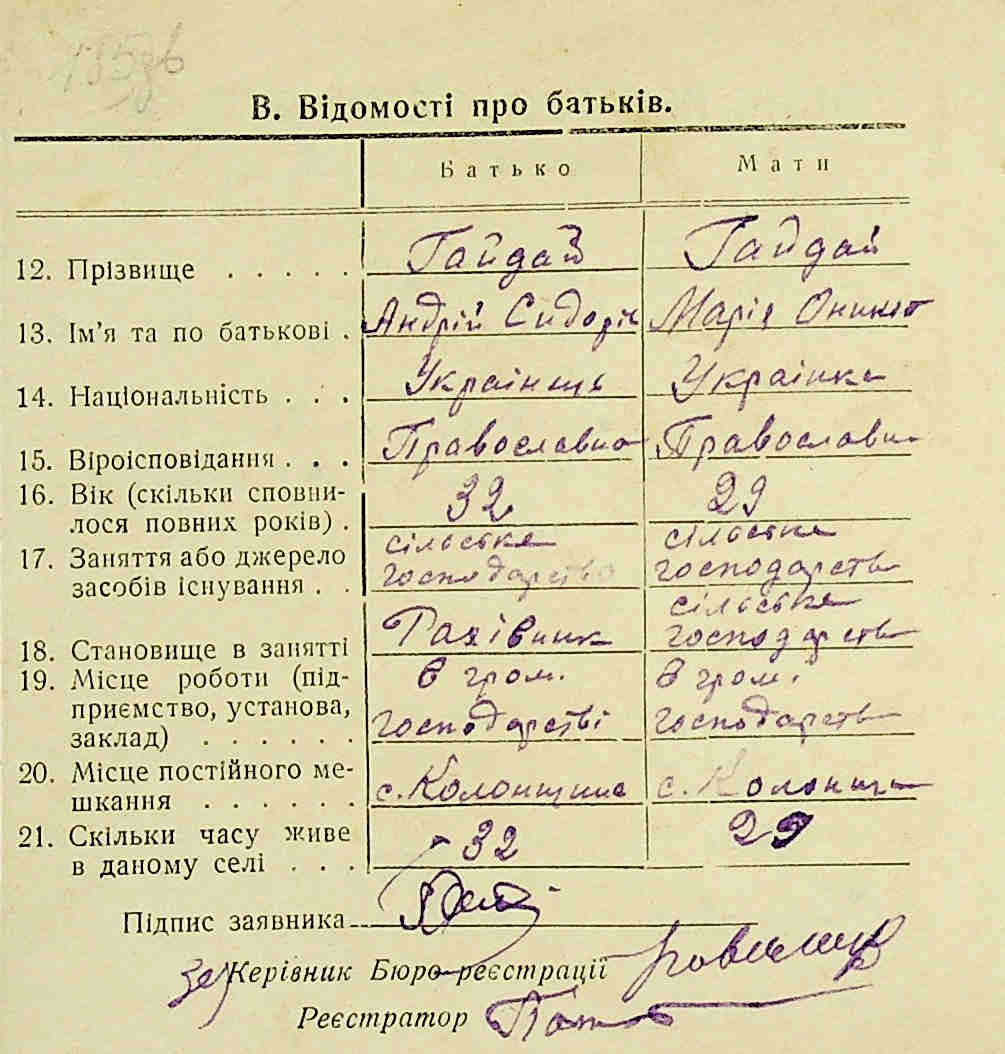 В. Відомості про батьків.
Батько Мати
12. Прізвище . . . . . Гайдай Гайдай
13. Ім'я та по батькові . Андрій Сидорів Марія Оникіт
14. Національність . . . Українець Українка
15. Віроісповідання . . . Православно Православн
16. Вік (скільки сповни- 32 29
лося повних років) .
17. Заняття або джерело сільське сільське
засобів існування . . господарство господарств
сільське
18. Становище в занятті Рахівник господарств
19. Місце роботи (під- в гром. в гром.
приємство, установа, господарстві господарств
заклад) . . . . . .
20. Місце постійного ме-
шкання . . . . . . с. Колонщина с. Колонщ
21. Скільки часу живе - 32 29
в даному селі . . .
Підпис заявника
за Керівник Бюро реєстрації
Реєстратор